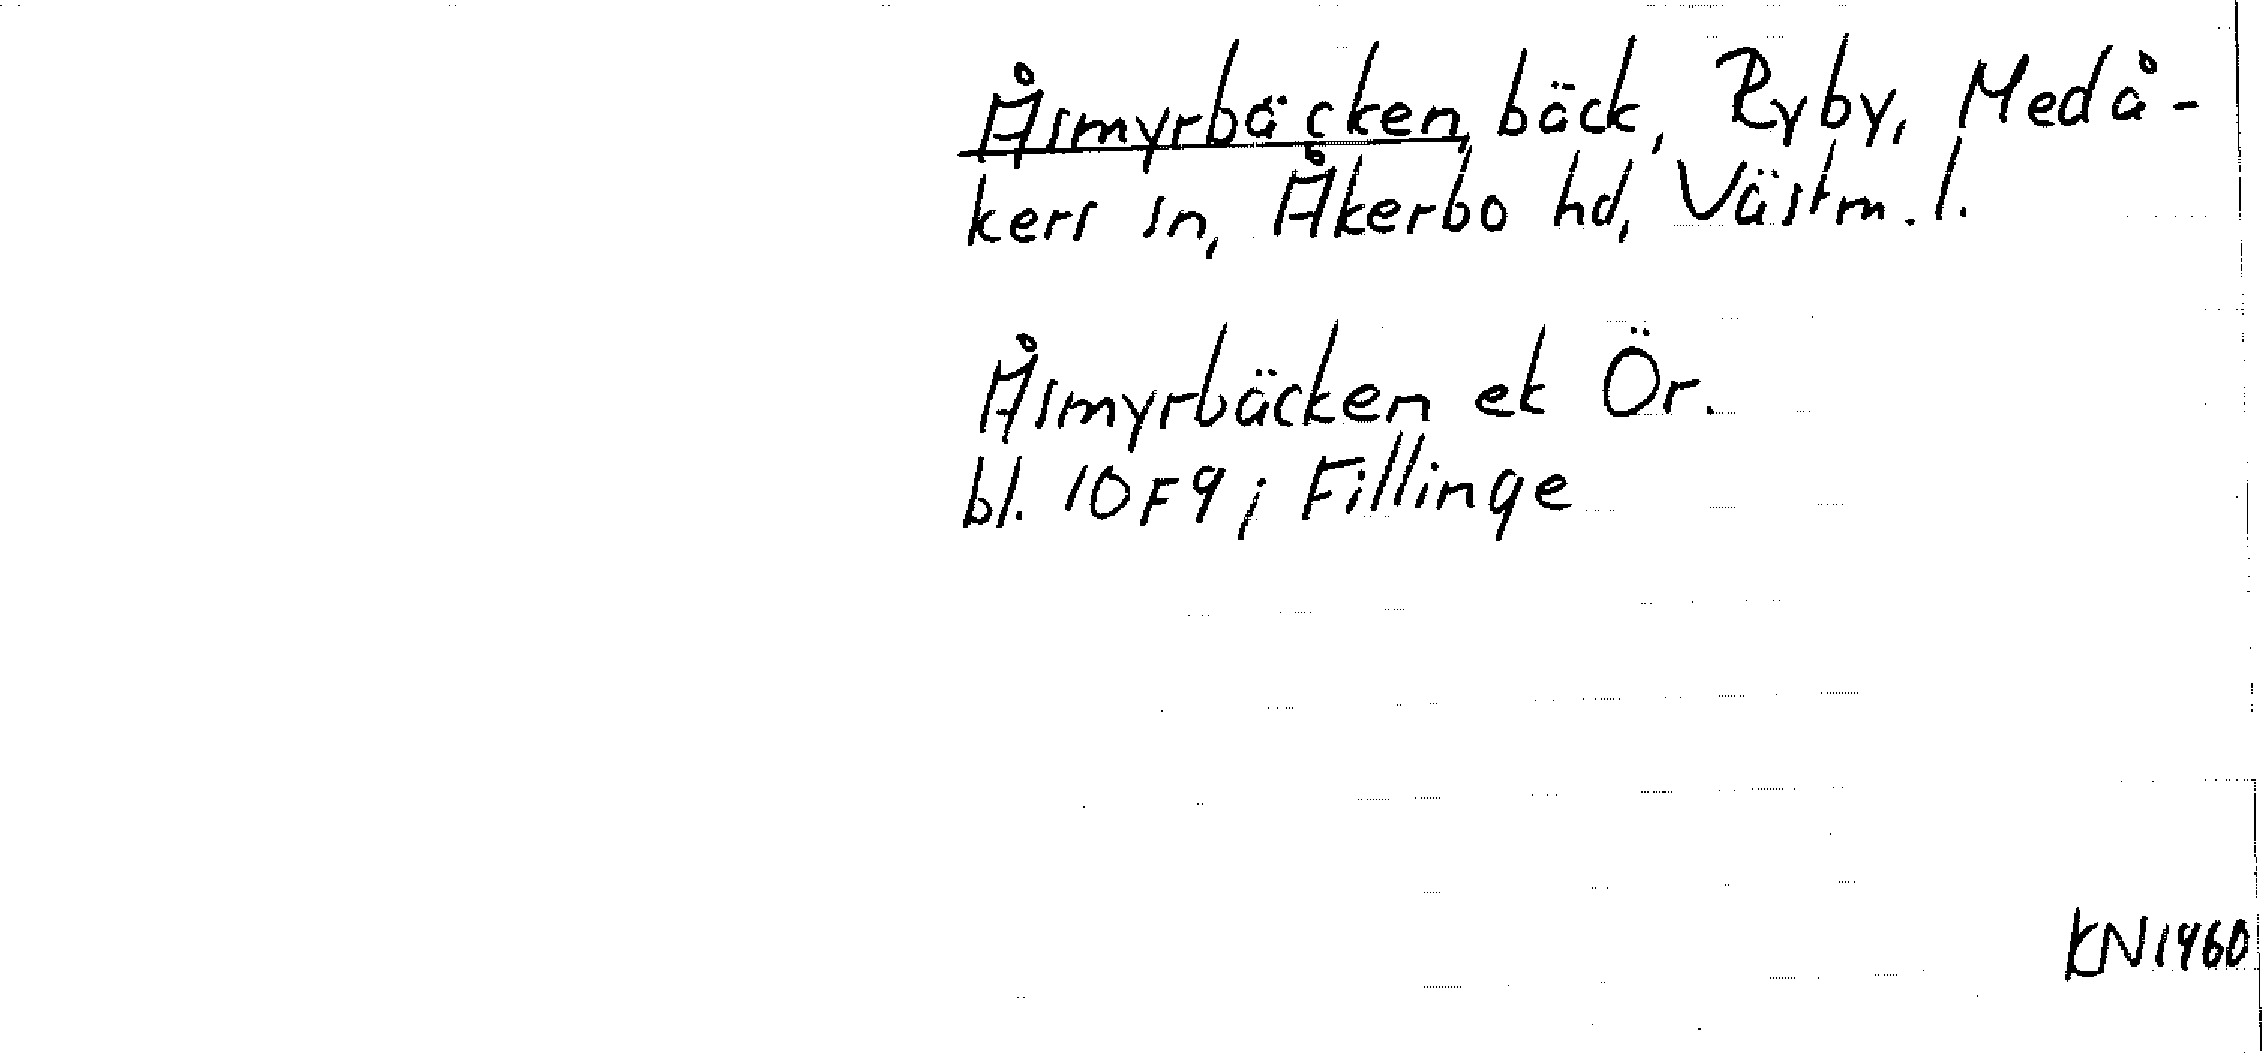 Åsmyrbäcken, bäck, Ryby, Medå-
kers sn, Åkerbo hd, Västm. l.
Åsmyrbäcken ek Ör.
bl. 10F9; Fillinge
KN1960